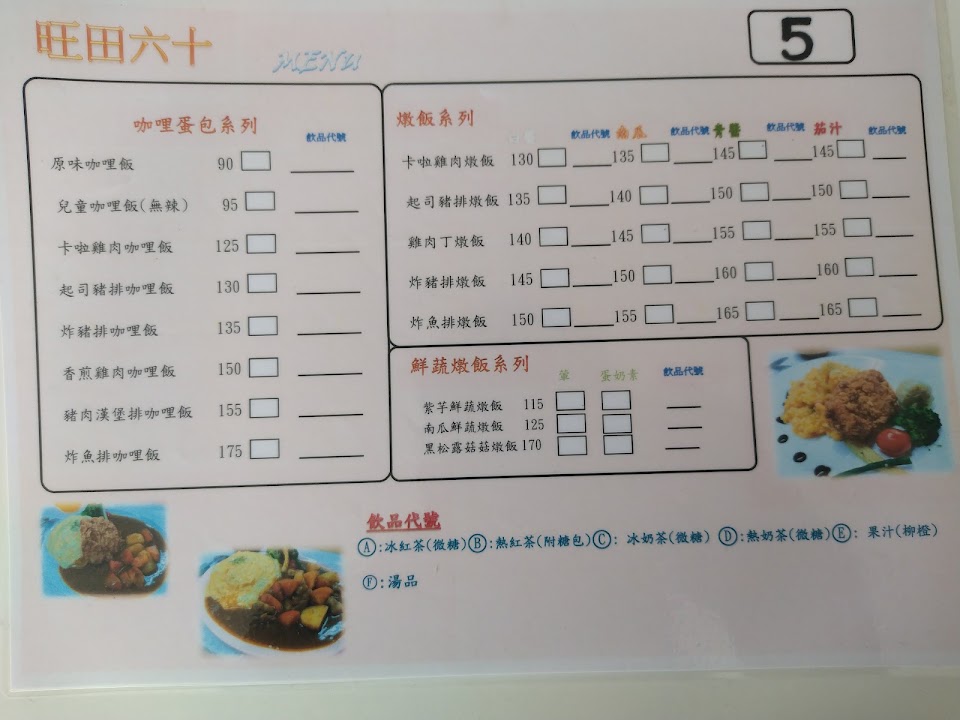 旺田六十
MENU
5
咖哩蛋包系列
飲品代號
原味咖哩飯 90
兒童咖哩飯(無辣) 95
卡啦雞肉咖哩飯 125
起司豬排咖哩飯 130
炸豬排咖哩飯 135
香煎雞肉咖哩飯 150
豬肉漢堡排咖哩飯 155
炸魚排咖哩飯 175
燉飯系列
飲品代號 南瓜 飲品代號 青醬 飲品代號 茄汁 飲品代號
卡啦雞肉燉飯 130 135 145 145
起司豬排燉飯 135 140 150 150
雞肉丁燉飯 140 145 155 155
炸豬排燉飯 145 150 160 160
炸魚排燉飯 150 155 165 165
鮮蔬燉飯系列
蛋奶素 飲品代號
紫芋鮮蔬燉飯 115
南瓜鮮蔬燉飯 125
黑松露菇菇燉飯 170
飲品代號
Ⓐ:冰紅茶(微糖) Ⓑ:熱紅茶(附糖包) Ⓒ: 冰奶茶(微糖) Ⓓ:熱奶茶(微糖) Ⓔ: 果汁(柳橙)
Ⓕ:湯品